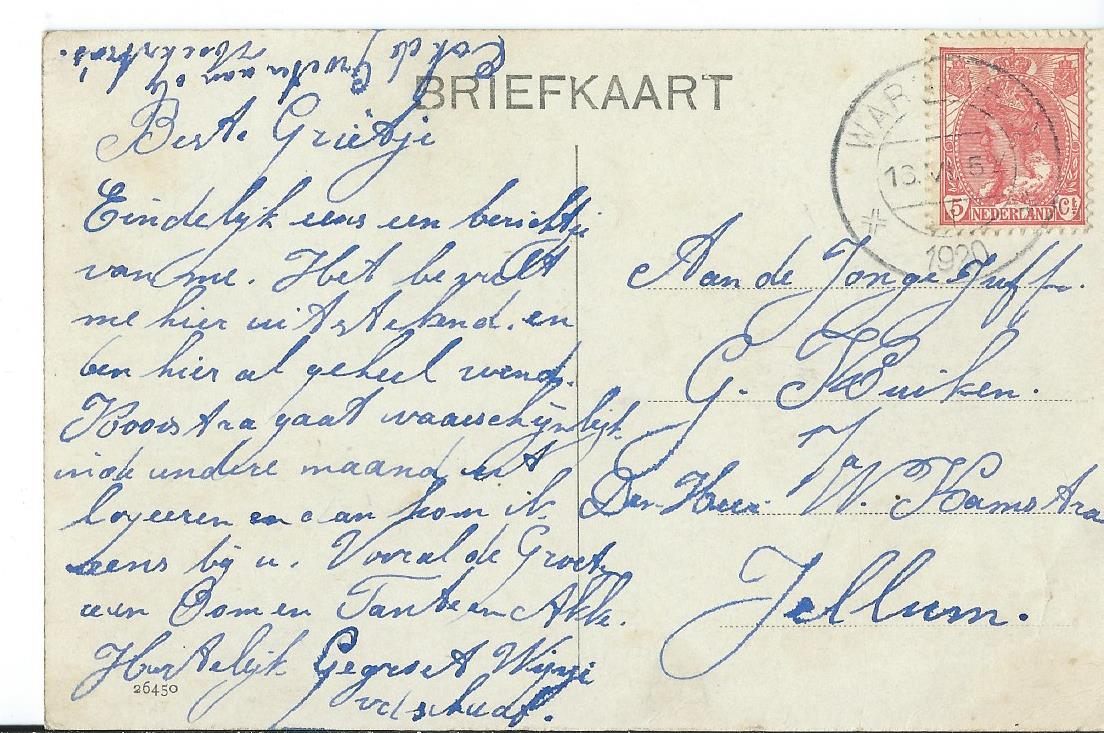 Ook de
Groeten aan
Hoekstra's.
BRIEFKAART
Beste Grietje
Eindelijk eens een berichtje
van me. Het bevalt
me hier uitstekend. en
ben hier al geheel
Kooistra gaat waarschijnlijk
in de andere maand uit
logeeren en dan kom ik
eens bij u. Vooral de Groeten
aan Oom en Tante en Akke.
Hartelijk Gegroet Wijnje
vd schaaf.
26450
WAR
16.V 5
1920
5 NEDERLAND Ct
Aan de Jonge Juffr.
G. Kuiken.
Den Heer W. Kamstra
Jellum.